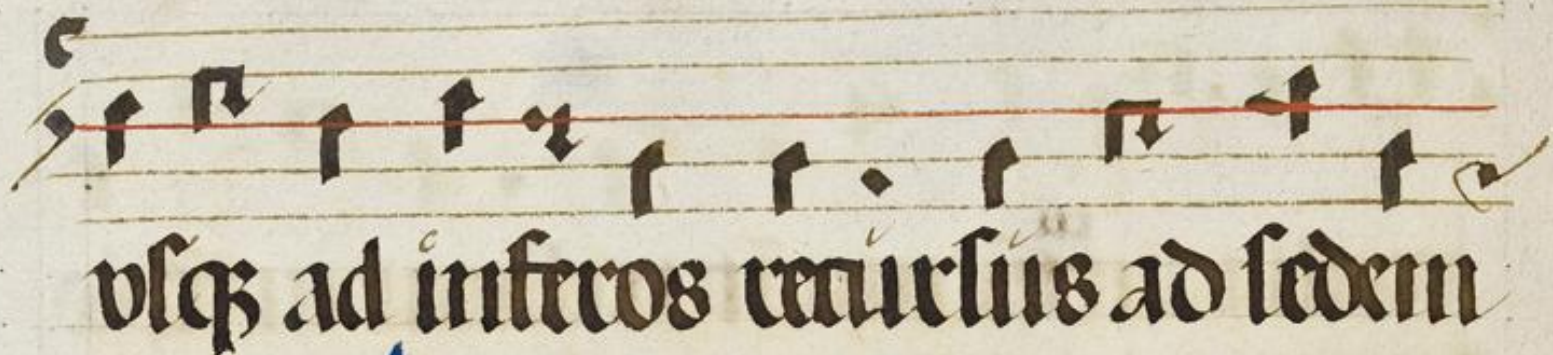 vſqꝫ ad inferos recurſus ad ſedem